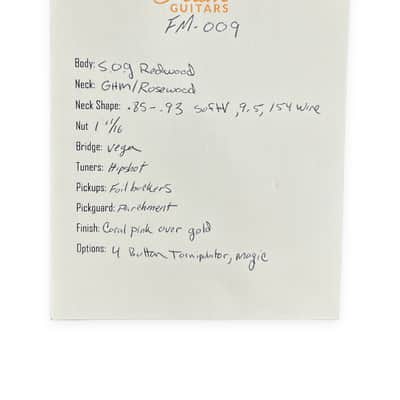 GUITARS
FM-009
Body: S.O.g Redwood
Neck: GHM/Rosewood
Neck Shape: .85-.93 soft V, 9.5, 154 wire
Nut 1 11/16
Bridge: Vega
Tuners: Hipshot
Pickups: Foilbuckers
Pickguard: Parchment
Finish: Coral pink over gold
Options: 4 Button Tornipulator, magic